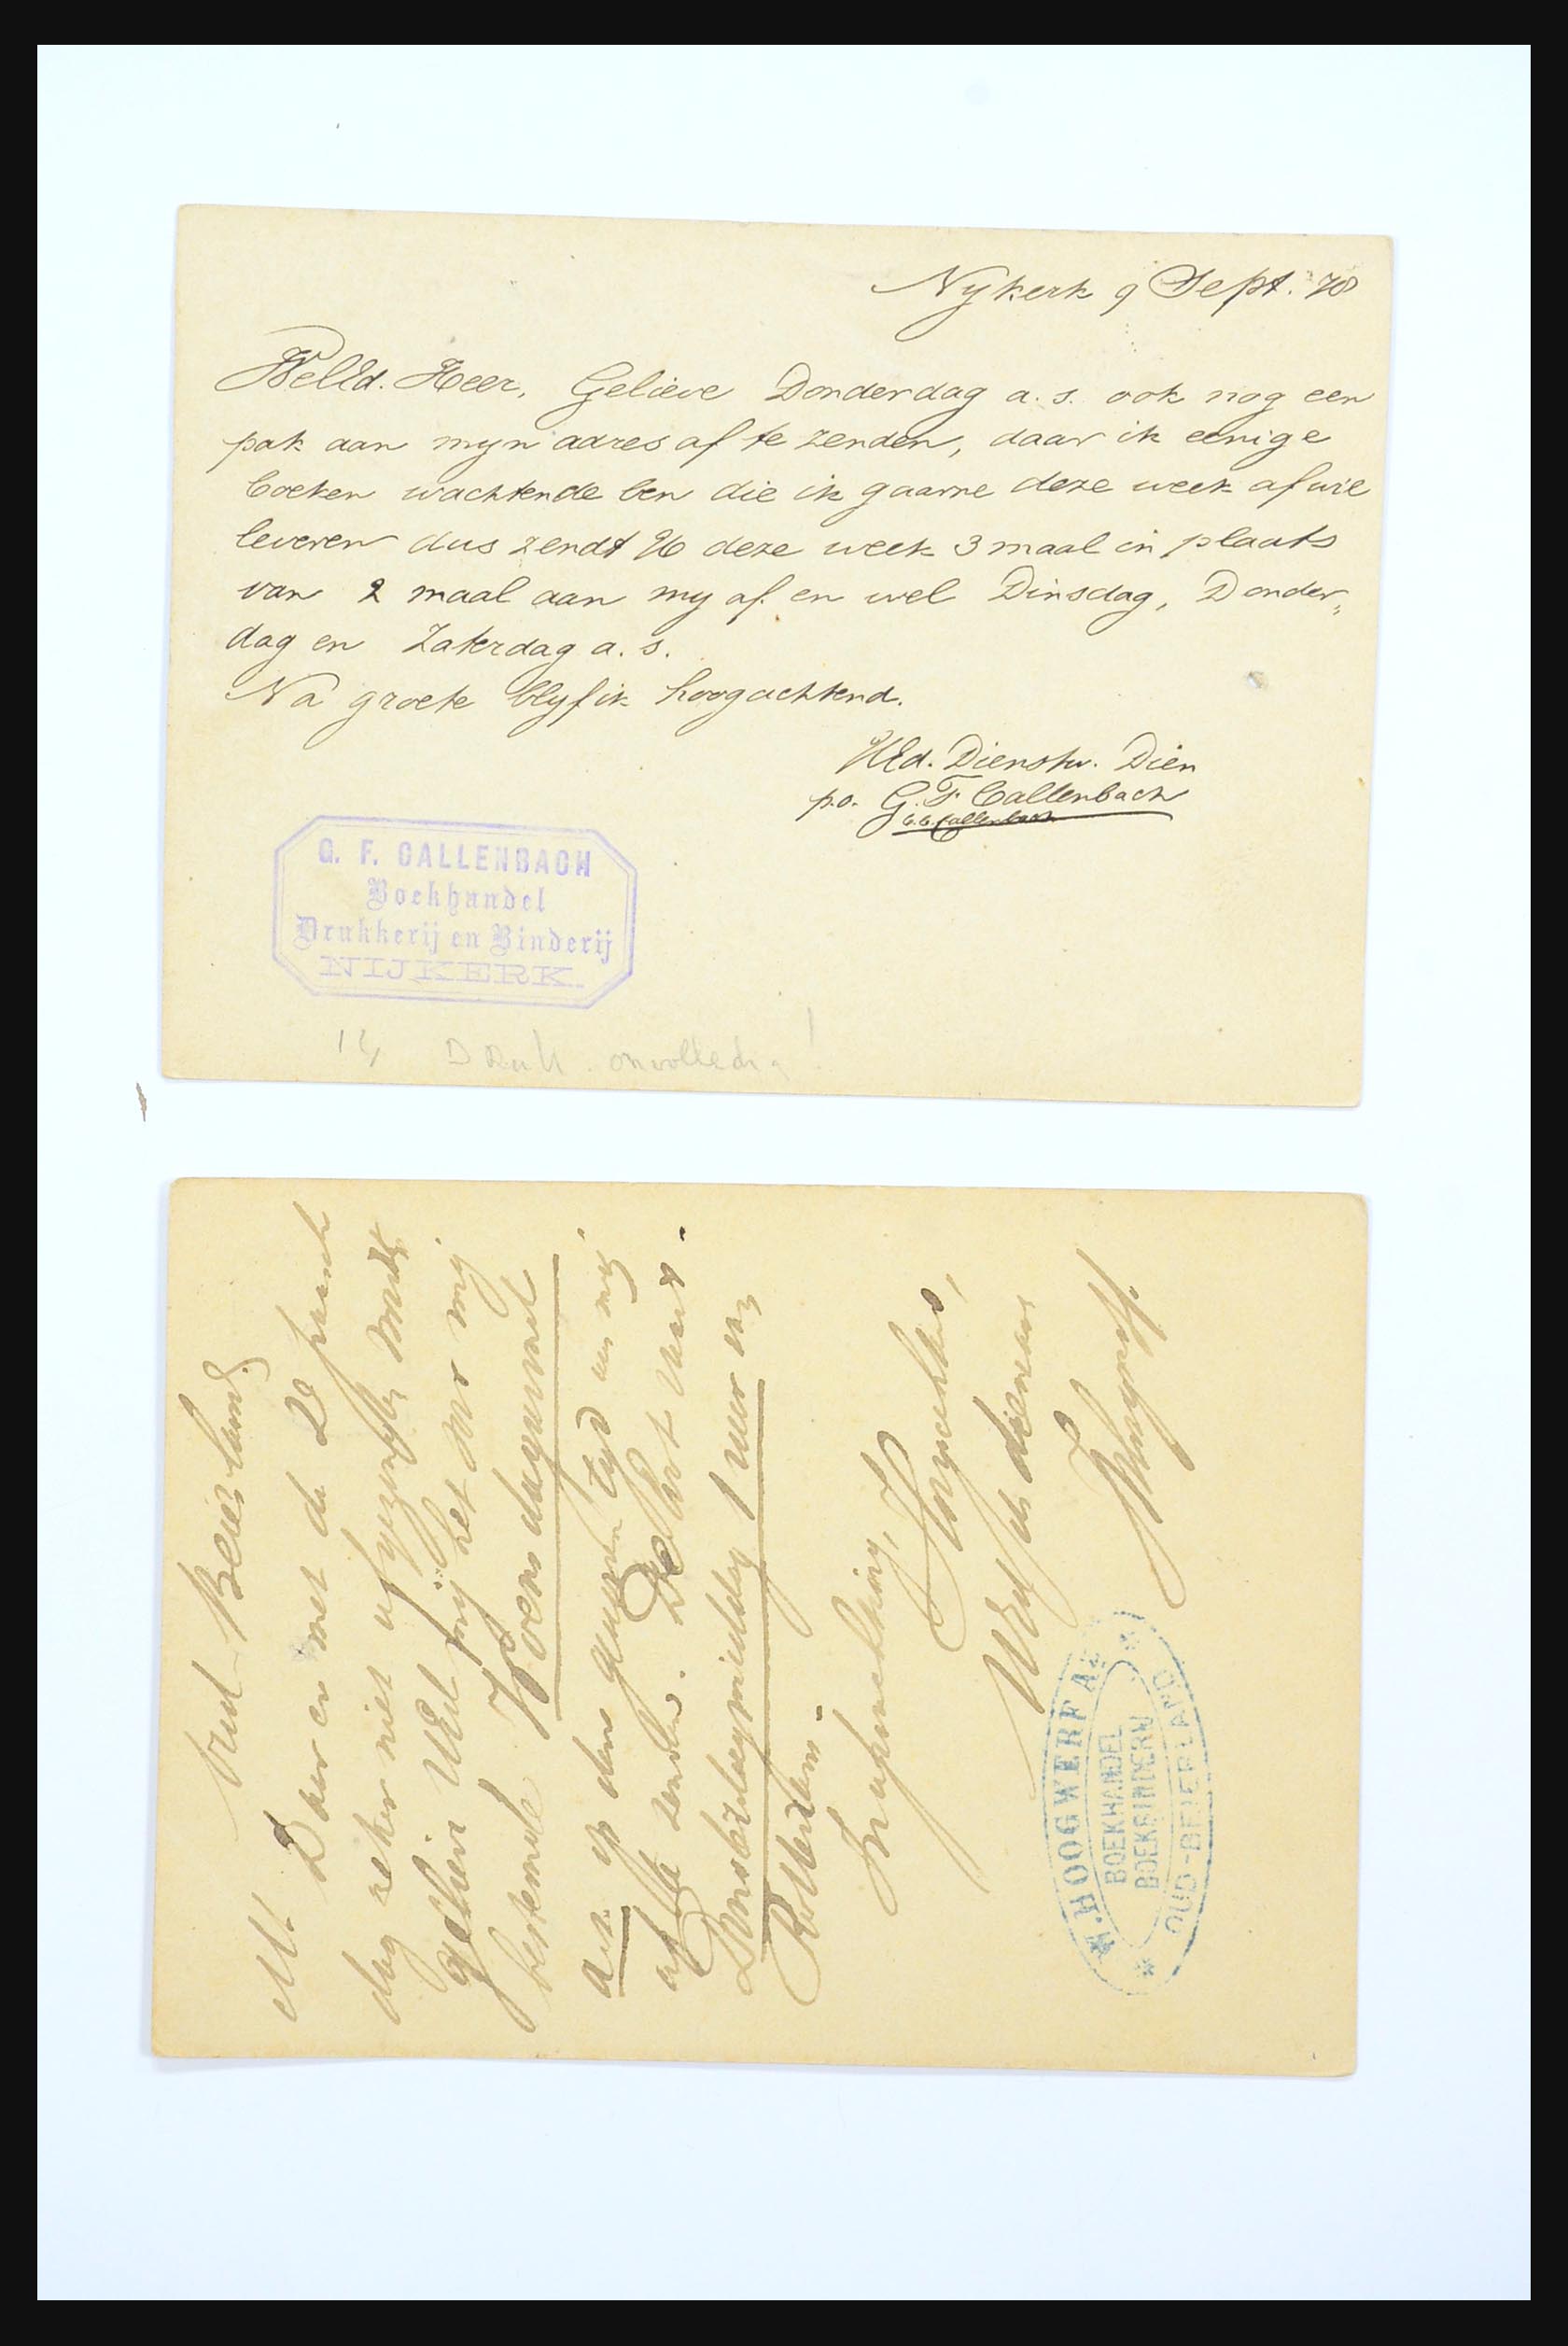 Nykerk 9 Sept. 78
WelEd. Heer, Gelieve Donderdag a. s. ook nog een
pak aan myn adres af te zenden, daar ik eenige
boeken wachtende ben die ik gaarne deze week af wil
leveren dus zendt U deze week 3 maal in plaats
van 2 maal aan my af. en wel Dinsdag, Donder„
dag en Zaterdag a. s.
Na groete blyf ik hoogachtend.
UEd. Dienstw. Dien
p.o. G. F. Callenbach
C.C. Callenbach
G. F. CALLENBACH
Boekhandel
Drukkerij en Binderij
NIJKERK.
Druk. onvolledig!
Oud-Beierland.
M. Daar er met de 2e
dag zeker niet
gelieve UEd mij het voor mij
bestemde Woensdag
a.s. op den tijd aan mij
af te zenden. De boot vaart
1 uur van
Rotterdam.
Hoogachtend,
UEd dienaar
W. Hoogwerf.
W. HOOGWERF Az.
BOEKHANDEL
BOEKBINDERIJ
OUD-BEIERLAND